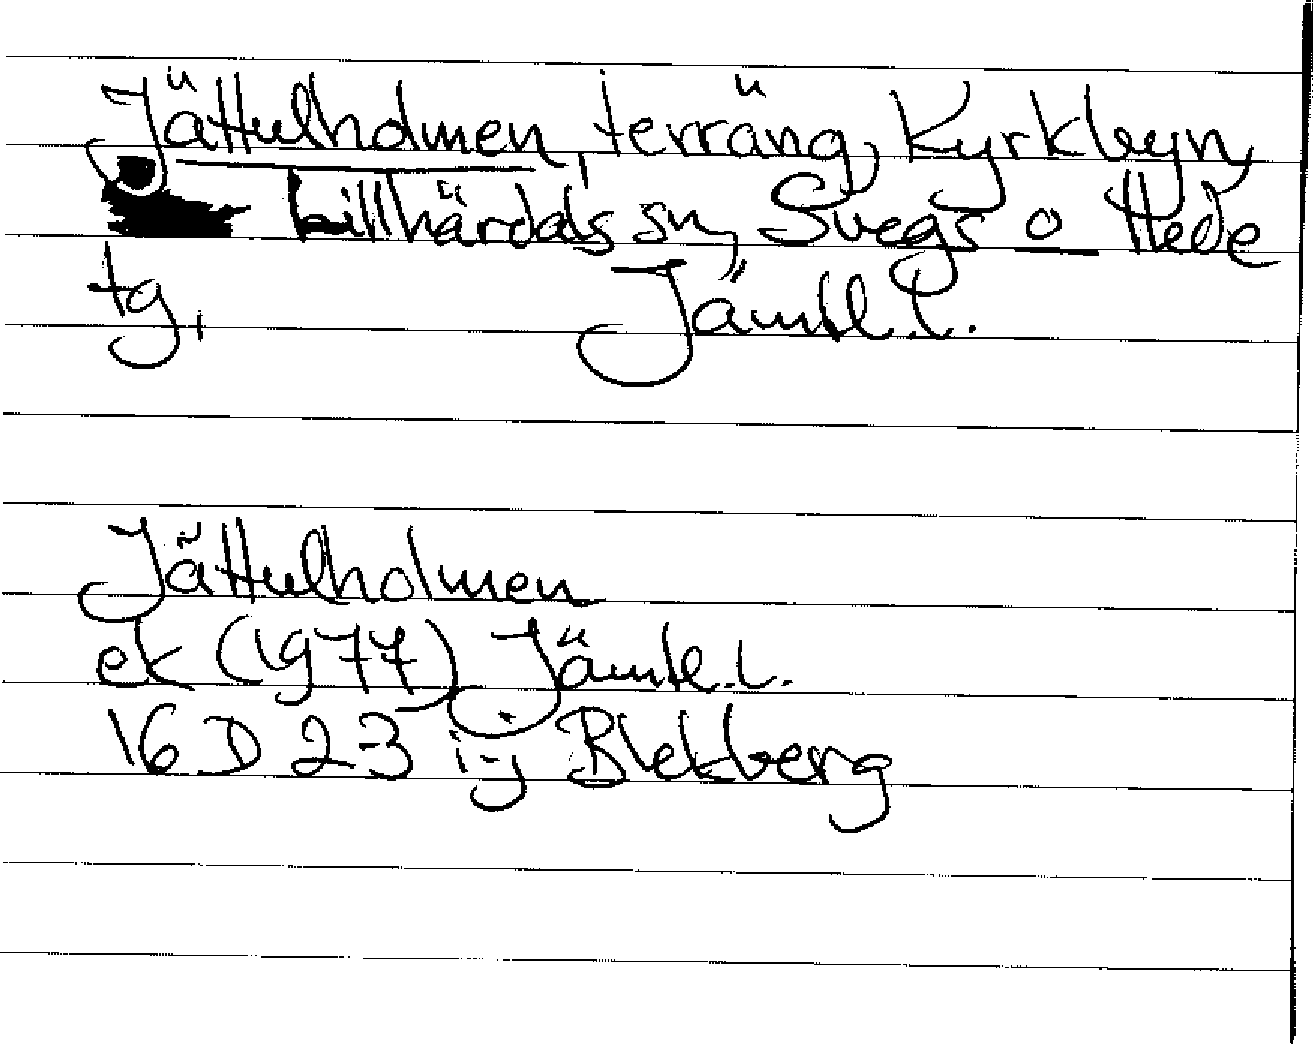 Jättulholmen, terräng, Kyrkbyn,
Lillhärdals sn, Svegs o Hede
tg, Jämtl.l.
Jättulholmen
ek (1977) Jämtl.l.
16 D 2-3 i-j Blekberg